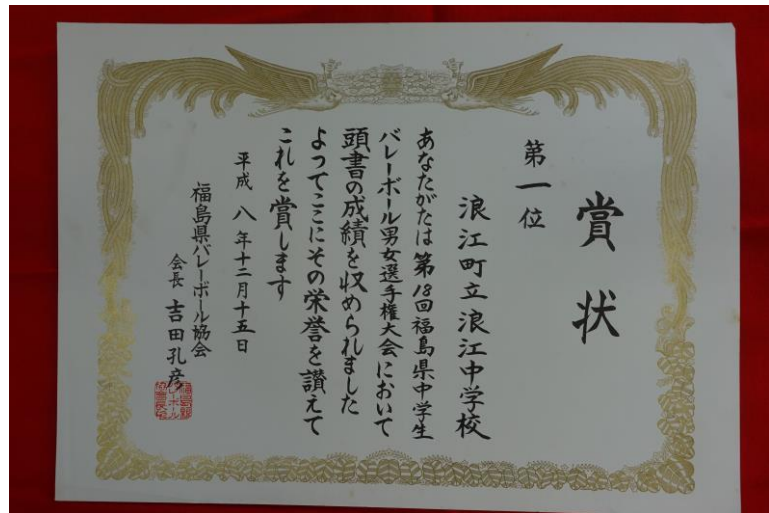 賞状
第一位
浪江町立浪江中学校
あなたがたは第18回福島県中学生
バレーボール男女選手権大会において
頭書の成績を収められました
よってここにその栄誉を讃えて
これを賞します
平成八年十二月十五日
福島県バレーボール協会
会長 吉田孔彦